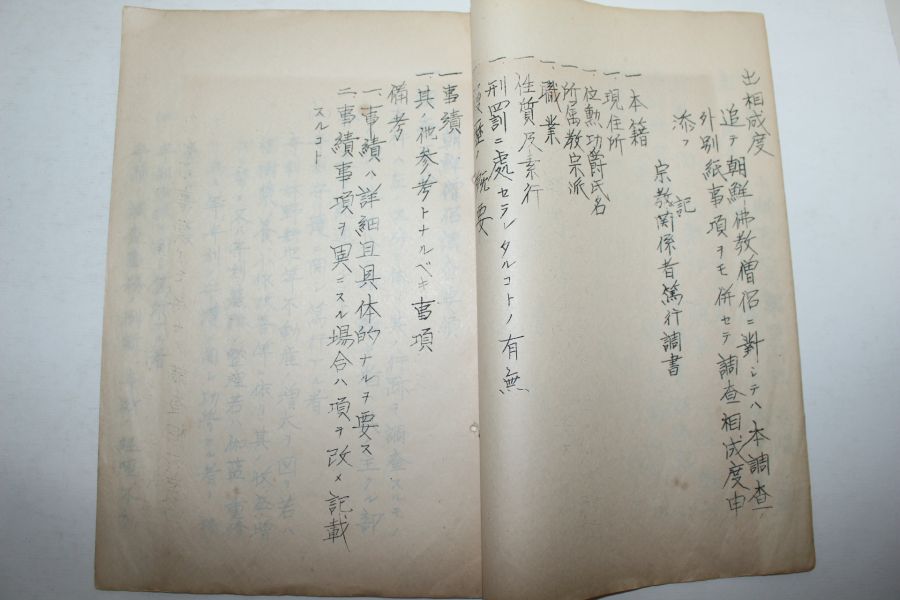 出相成度
追テ朝鮮佛教僧侶ニ對シテハ本調査
外別紙事項ヲモ併セテ調査相成度申
添フ
記
宗教関係者篤行調書
一本籍
一、現住所
一、位勲功爵氏名
一、所属教宗派
一、職業
一性質及素行
一刑罰ニ處セラレタルコトノ有無
一履歴ノ概要
一事績
一其ノ他参考トナルベキ事項
備考
一、事績ハ詳細且具体的ナルヲ要ス
二、事績事項ヲ異ニスル場合ハ項ヲ改メ記載
スルコト